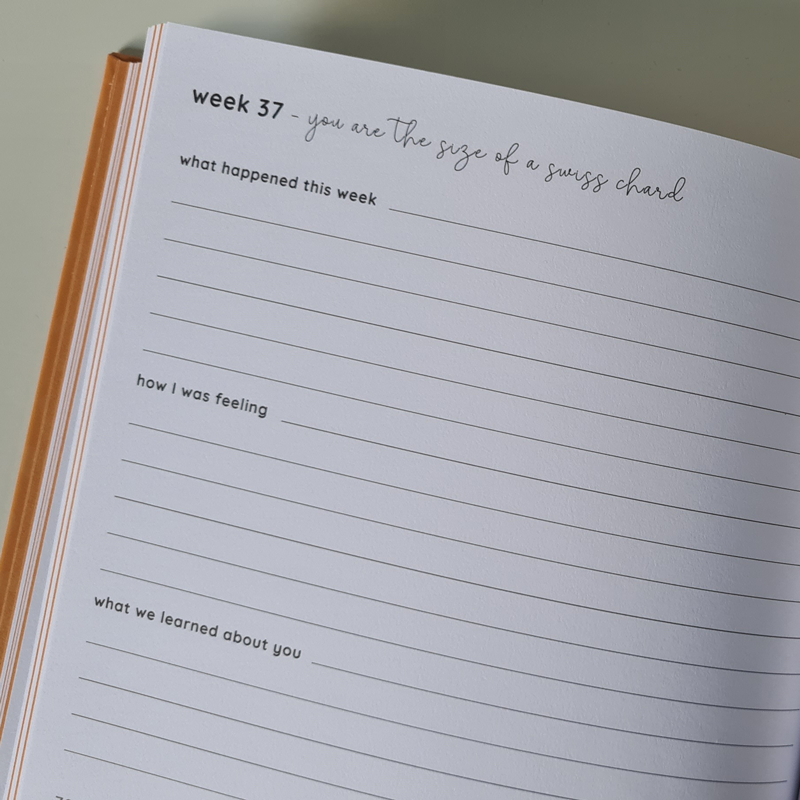 week 37 - you are the size of a swiss chard
what happened this week
how I was feeling
what we learned about you